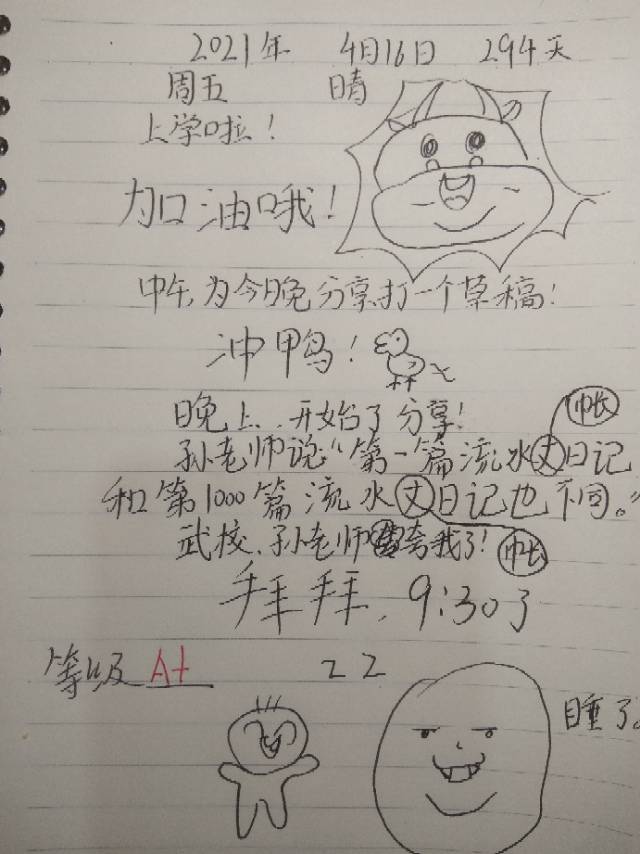 2021年 4月16日 294天
周五 晴
上学啦！
加油哦！
中午，为今晚分享打一个草稿！
冲鸭！
晚上，开始了分享！
孙老师说“第一篇流水丈日记
和第1000篇流水丈日记也不同。”
帐
帐
武校、孙老师夸我了！
拜拜，9:30了
等级 A+ z z
睡了。